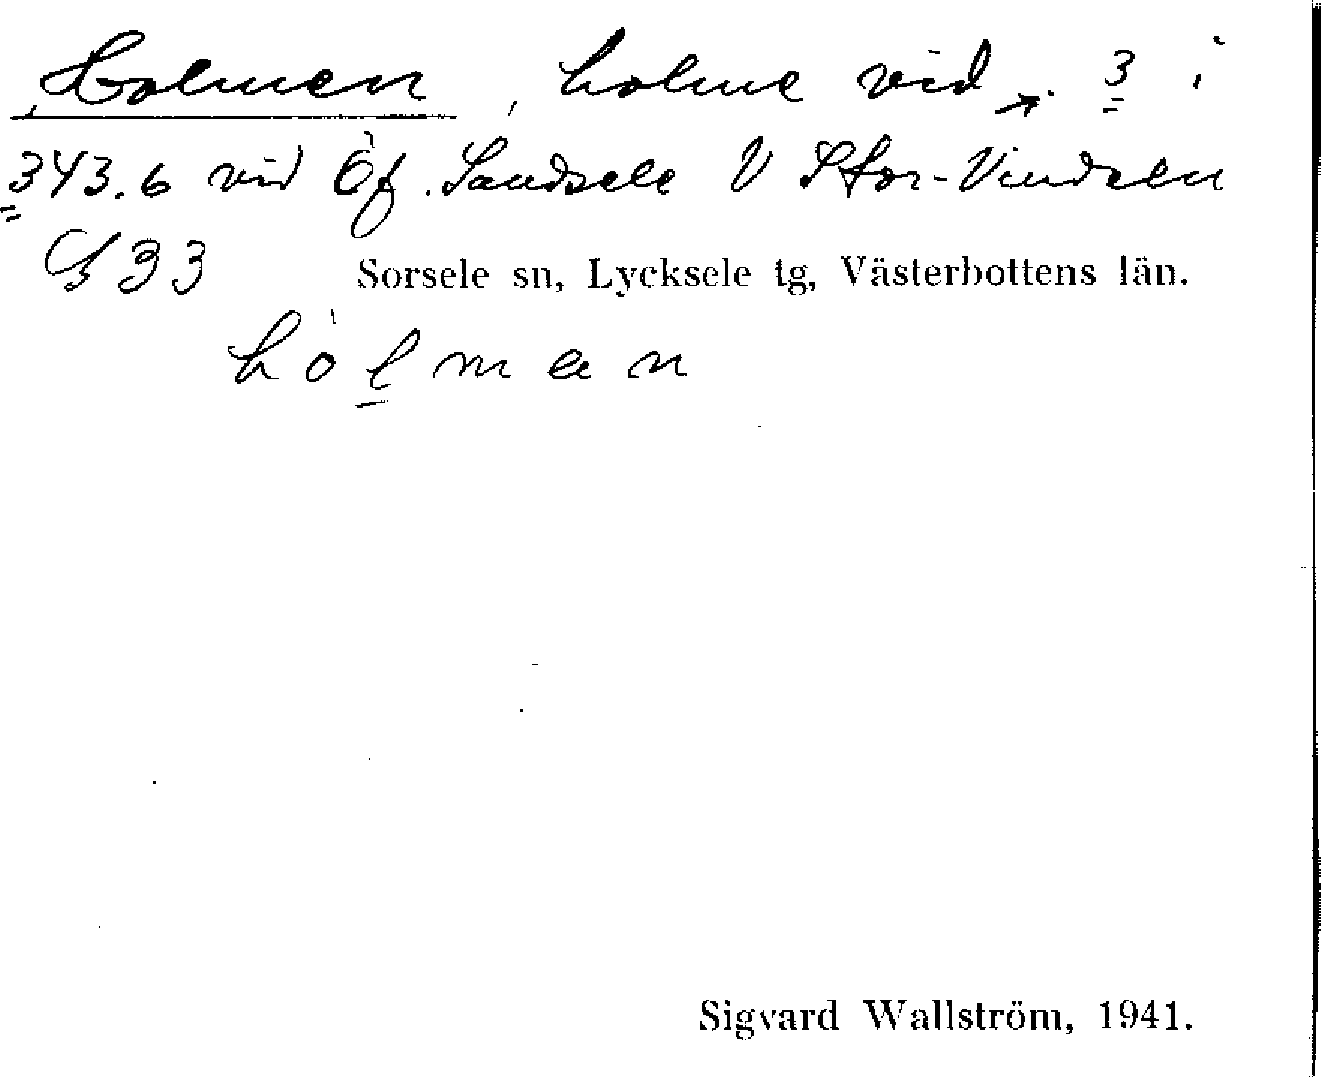 Holmen, holme vid → 3 i
343.6 vid Öf. Sandsele V Stor-Vindeln
G 33 Sorsele sn, Lycksele tg, Västerbottens län.
hòlman
Sigvard Wallström, 1941.